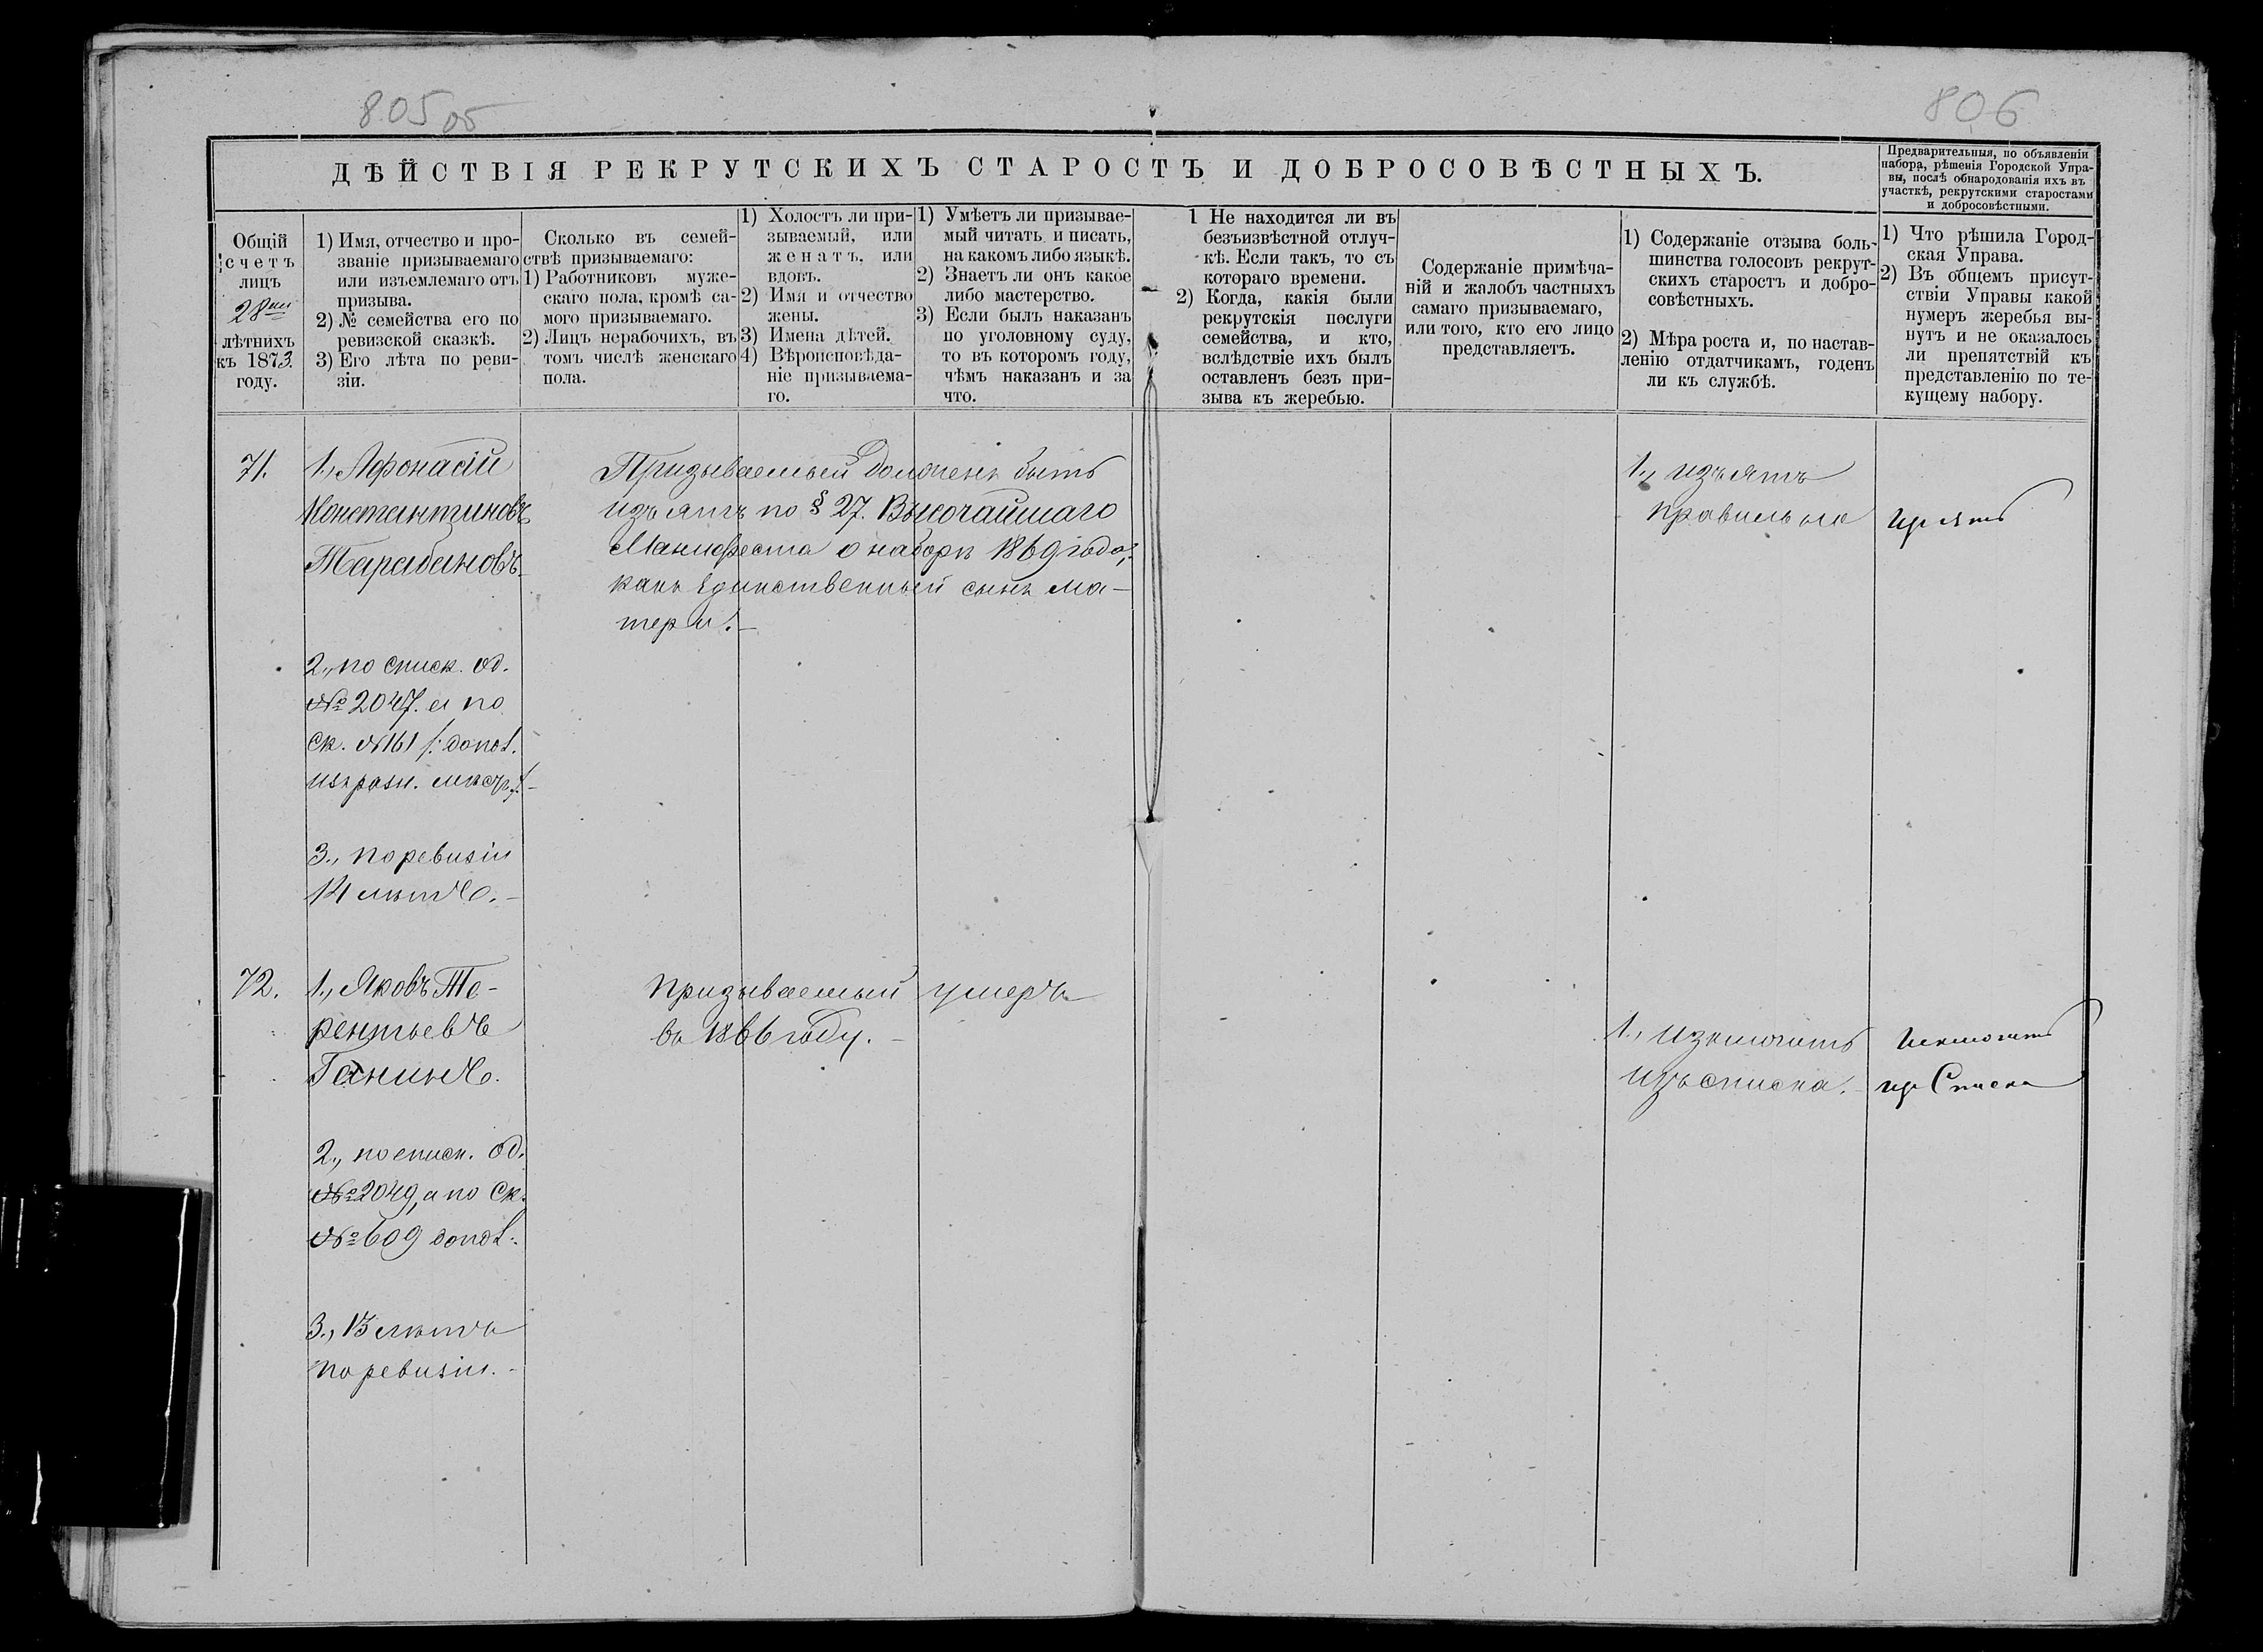 805 об
806
ДѢЙСТВІЯ РЕКРУТСКИХЪ СТАРОСТЪ И ДОБРОСОВѢСТНЫХЪ.
Предварительныя, по объявленіи
набора, рѣшенія Городской Упра-
вы, послѣ обнародованія ихъ въ
участкѣ, рекрутскими старостами
и добросовѣстными.
Общій
счетъ
лицъ
28ми
лѣтнихъ
къ 1873
году.
1) Имя, отчество и про-
званіе призываемаго
или изъемлемаго отъ
призыва.
2) № семейства его по
ревизской сказкѣ.
3) Его лѣта по реви-
зіи.
Сколько въ семей-
ствѣ призываемаго:
1) Работниковъ муже-
скаго пола, кромѣ са-
мого призываемаго.
2) Лицъ нерабочихъ, въ
томъ числѣ женскаго
пола.
1) Холостъ ли при-
зываемый, или
женатъ, или
вдовъ.
2) Имя и отчество
жены.
3) Имена дѣтей.
4) Вѣроисповѣда-
ніе призываема-
го.
1) Умѣетъ ли призывае-
мый читать и писать,
на какомъ либо языкѣ.
2) Знаетъ ли онъ какое
либо мастерство.
3) Если былъ наказанъ
по уголовному суду,
то въ которомъ году,
чѣмъ наказанъ и за
что.
1 Не находится ли въ
безъизвѣстной отлуч-
кѣ. Если такъ, то съ
котораго времени.
2) Когда, какія были
рекрутскія послуги
семейства, и кто,
вслѣдствіе ихъ былъ
оставленъ безъ при-
зыва къ жеребью.
Содержаніе примѣча-
ній и жалобъ частныхъ
самаго призываемаго,
или того, кто его лицо
представляетъ.
1) Содержаніе отзыва боль-
шинства голосовъ рекрут-
скихъ старостъ и добро-
совѣстныхъ.
2) Мѣра роста и, по настав-
ленію отдатчикамъ, годенъ
ли къ службѣ.
1) Что рѣшила Город-
ская Управа.
2) Въ общемъ присут-
ствіи Управы какой
нумеръ жеребья вы-
нутъ и не оказалось
ли препятствій къ
представленію по те-
кущему набору.
71.
1., Афонасій
Константиновъ
Тарабановъ.
2., по списк. од.
№ 2047. а по
Ск. №161 /: допол.
изъ разн. мѣстъ:/
3., по ревизіи
14 лѣтъ. –
Призываемый долженъ быть
изъятъ по § 27. Высочайшаго
Манифеста о наборѣ 1869 года,
какъ единственный сынъ ма-
тери. –
1., изъять
правильно
изъять
72.
1., Яковъ Те-
рентьевъ
Ганинъ.
2., по списк. од.
№ 2049, а по Ск.
№ 609 допол.
3., 13 лѣтъ
по ревизіи. –
Призываемый умеръ
въ 1866 году. –
1., Изключить
изъ списка.
Исключить
изъ Списка